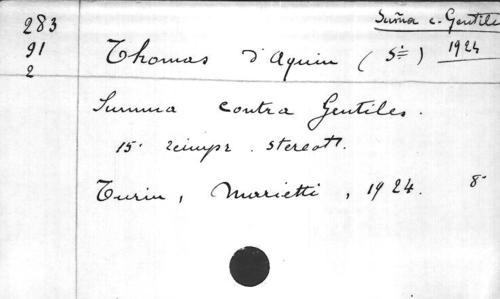 283
91
2
Suma c. Gentile
1924
Thomas d'Aquin (St)
Summa contra Gentiles.
15. reimpr. stereot.
Turin, Marietti, 1924. 8°